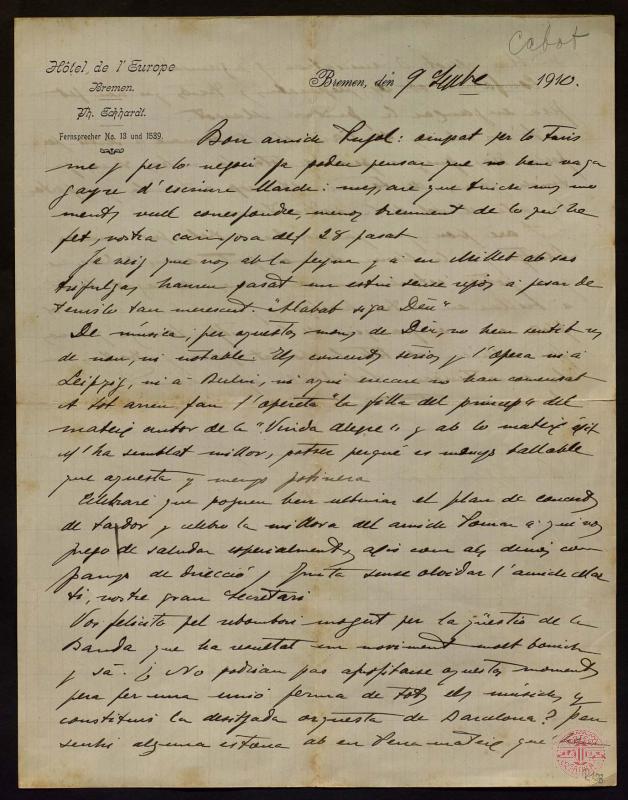 Cabot
Hôtel de l'Europe
Bremen.
Ph. Eckhardt.
Fernsprecher No. 13 und 1539.
Bremen, den 9 1910.
Bon amich Pujol: ocupat per lo turis
me y per lo negoci ja poden pensar que no hem vaga
gayre d'escriure llarch: mes, are que tinch uns mo
ments vull correspondre, menos breument de lo que he
fet, vostra carinyosa del 28 pasat
Ja veig que vos ab la feyna y a en Millet ab sas
han pasat un estiu sense repos á pesar de
tenirlo tan merescut. "Alabat siga Déu"
De música, per aquestos mons de Déu, no hem sentit res
de nou, ni notable. Els concerts serios y l'opera ni á
Leipzig, ni á Berlin, ni aquí encare no han comensat
A tot arreu fan l'opereta "la filla del princep" del
mateix autor de la "Viuda Alegre" y ab lo mateix éxit
M'ha semblat millor, potser perqué es menys ballable
que aquesta y menys
Celebraré que poguen ben ultimar el plan de concerts
de tardor y celebro la millora del amich Tomar a qui vos
prego de saludar especialment, axis com als demés com
panys de direcció y Junta sense olvidar l'amich
nostre gran Secretari
Vos felicito pel rebombori mogut per la qüestio de la
Banda que ha resultat un moviment molt bonich
y sá. ¿No podrian pas aprofitarse aquestos moments
pera fer una unió ferma de tots els músichs y
constituir la desitjada orquesta de Barcelona? Jau
sentir alguna estona ab en Pena mateix que